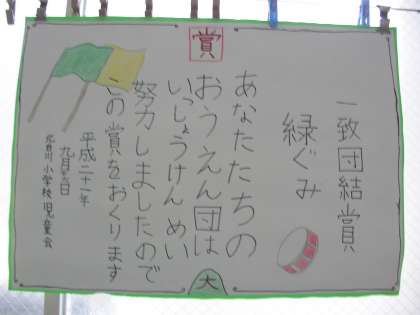 賞
一致団結賞
緑ぐみ
あなたたちの
おうえん団は
いっしょうけんめい
努力しましたので
この賞をおくります
平成二十一年
小学校児童会
大